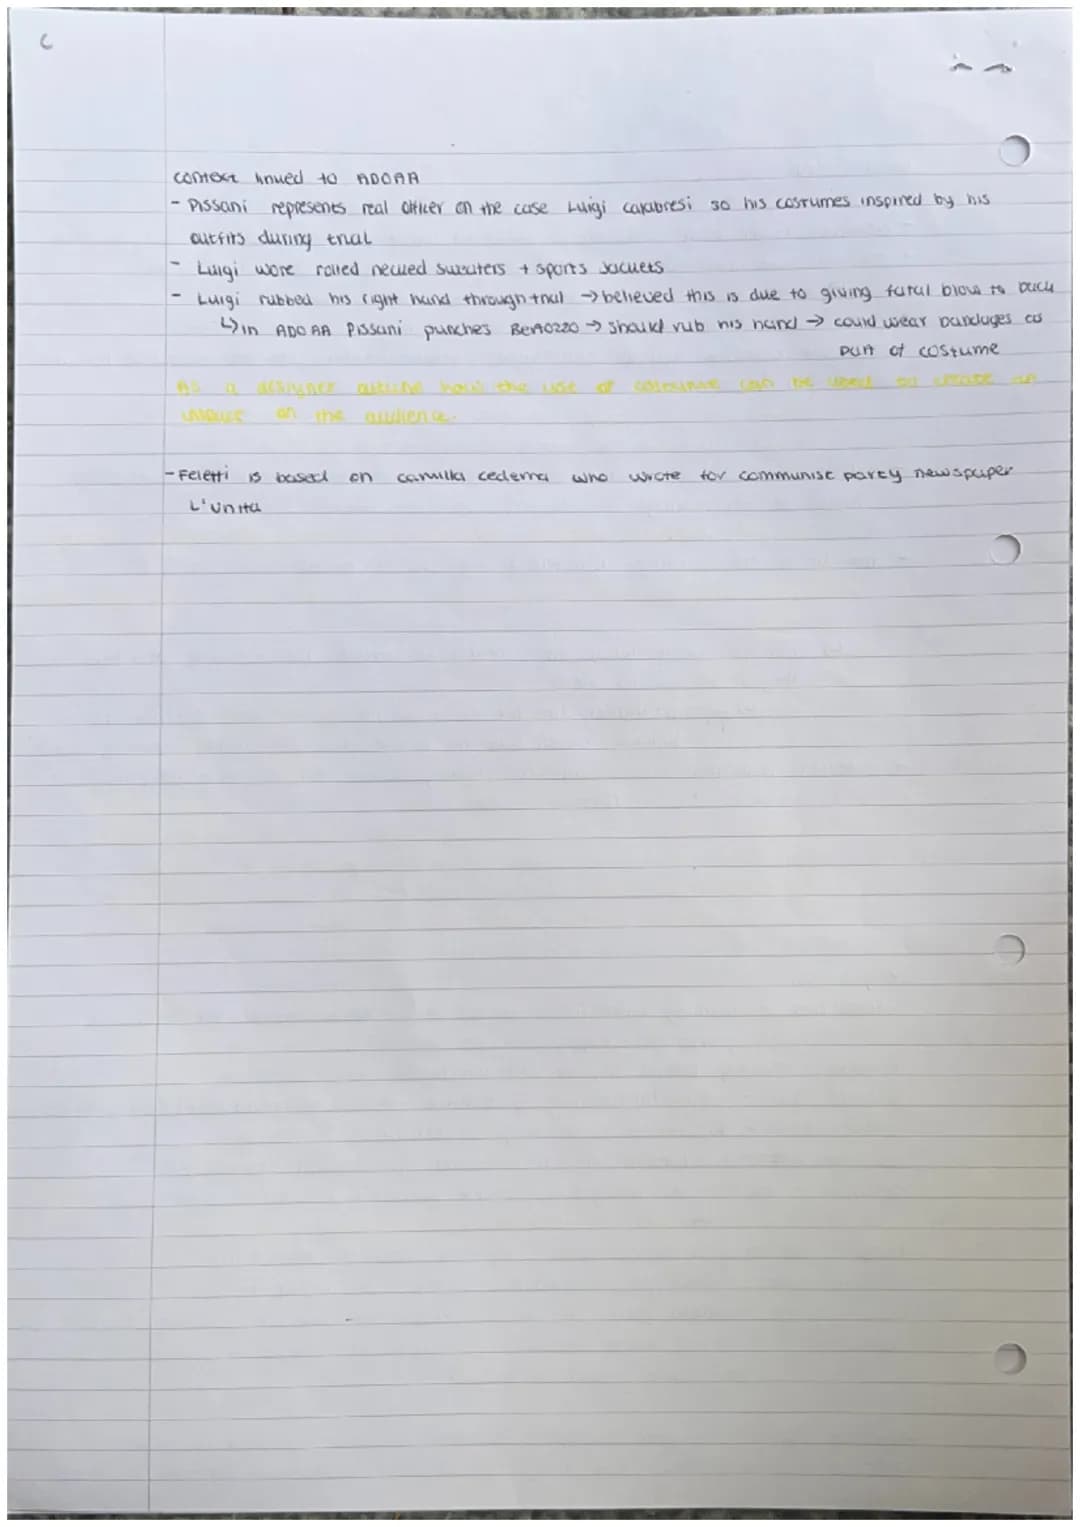 context linked to ADOAA
- Pissani represents real officer on the case Luigi calabresi so his costumes inspired by his
outfits during trial
- Luigi wore rolled necked sweaters + sports jackets
- Luigi rubbed his right hand through trial → believed this is due to giving fatal blow to back
↳ in ADOAA Pissani punches Bertozzo → should rub his hand → could wear bandages as
part of costume
As a designer outline how the use of costume can be used to create an
impact on the audience.
- Feletti is based on camilla cederna who wrote for communist party newspaper
L'unita